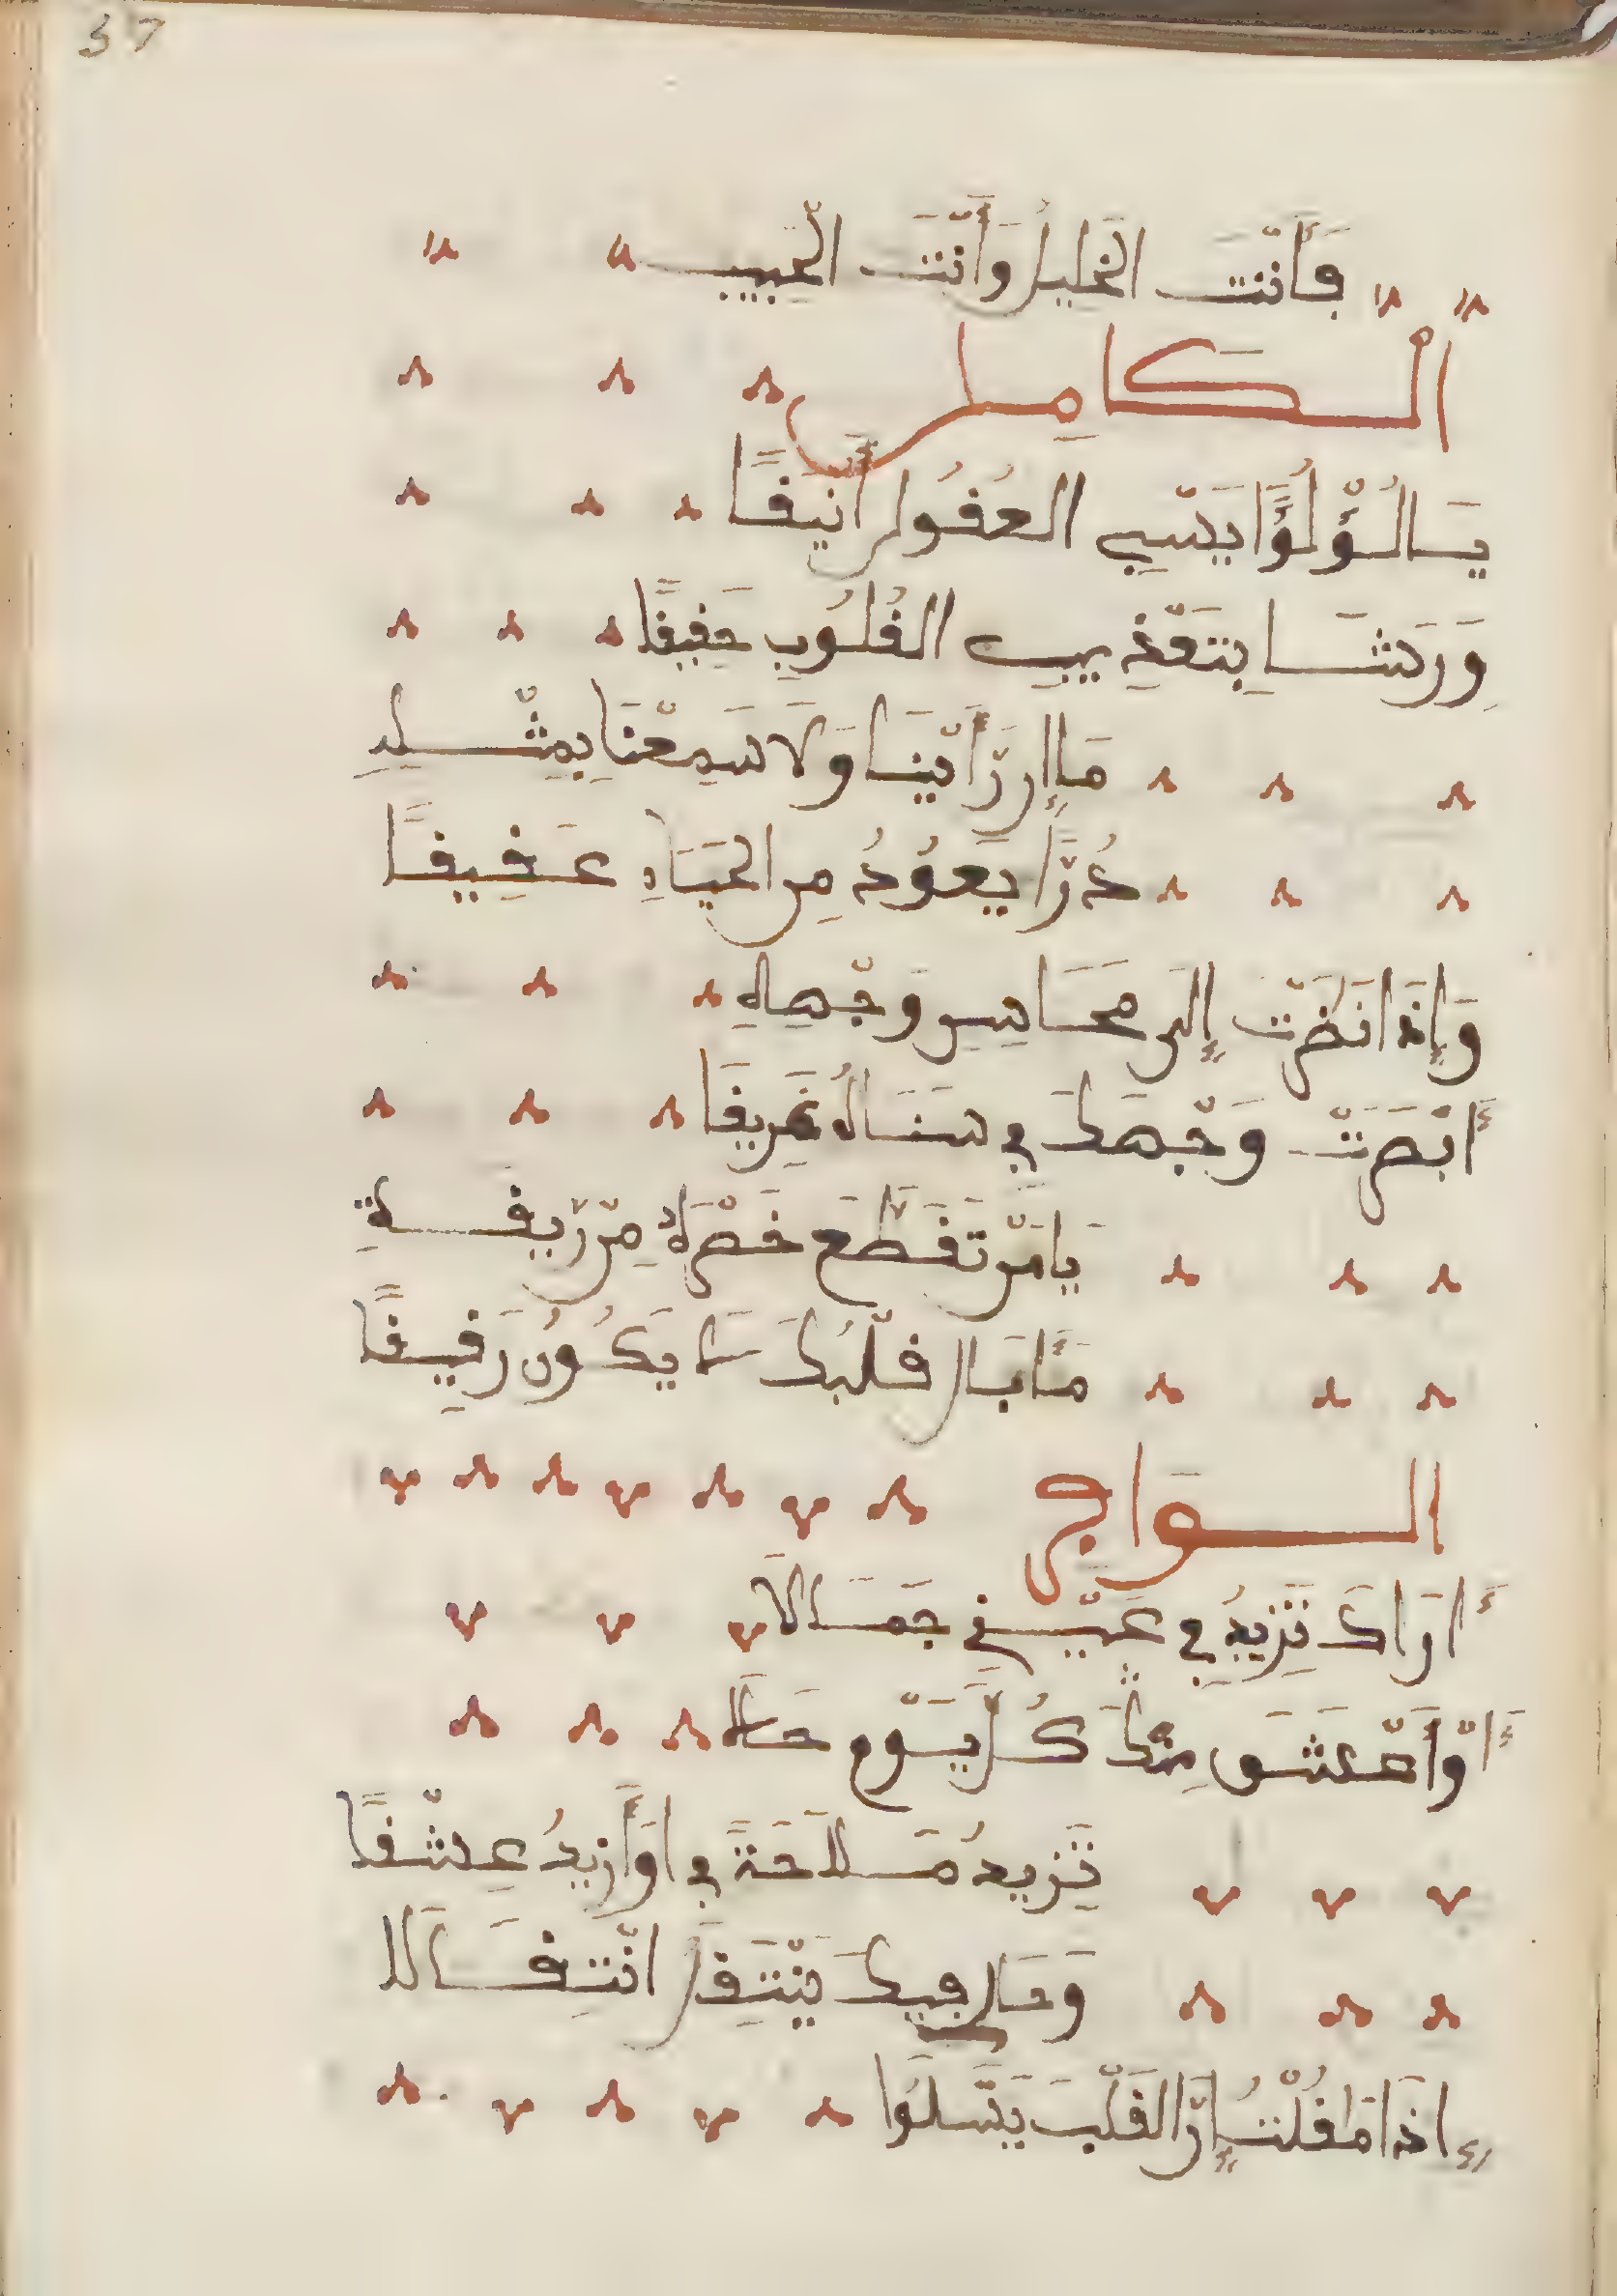 37
فَأَنْتَ الخَلِيلُ وَأَنْتَ الْحَبِيب
الْكَامِل
يَا لُؤْلُؤًا يَسْبِي العُقُولَ أَنِيقًا
وَرَشَا بِتَعْذِيبِ القُلُوبِ حَقِيقًا
مَا إِن رَأَيْنَا وَلَا سَمِعْنَا بِمِثْلِهِ
دُرًّا يَعُودُ مِنَ الحَيَاءِ عَقِيقًا
وَإِذَا نَظَرْتَ إِلَى مَحَاسِنِ وَجْهِهِ
أَبْصَرْتَ وَجْهَكَ فِي سَنَاهُ غَرِيقَا
يَا مَنْ تَقَطَّعَ خَصْرُهُ مِنْ رِيقَةٍ
مَا بَالُ قَلْبُكَ لَا يَكُونُ رَقِيقًا
الوَافِر
أَرَاكَ تَزِيدُ فِي عَيْنِي جَمَالَا
أَوْ أَعْشَقُ مِنْكَ كُلَّ يَوْمٍ حَالَا
تَزِيدُ مَلَاحَةً فَأَزِيدُ عِشْقًا
وَحَالِي فِيكَ يَنْتَقِلُ انْتِقَالَا
إِذَا مَا قُلْتُ إِنَّ القَلْبَ يَسْلُوا